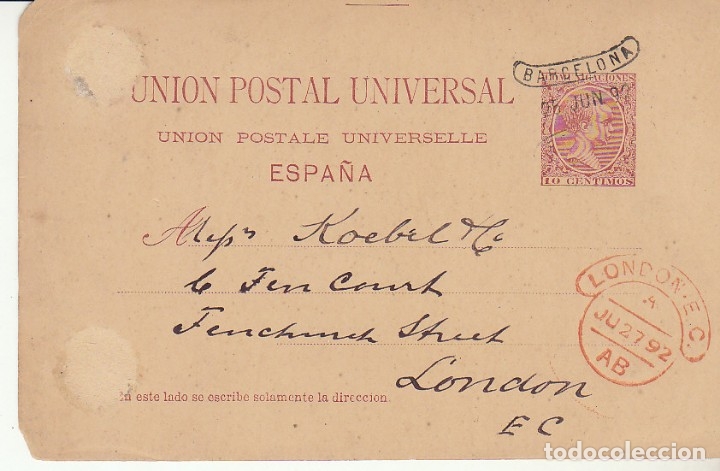 BARCELONA
JUN 92
UNION POSTAL UNIVERSAL
UNION POSTALE UNIVERSELLE
ESPAÑA
10 CENTIMOS
Messrs Koebel & Co
6 Fen Court
Fenchurch Street
London
E C
LONDON·E.C.
A
JU 27 92
AB
En este lado se escribe solamente la direccion.
todocoleccion.net